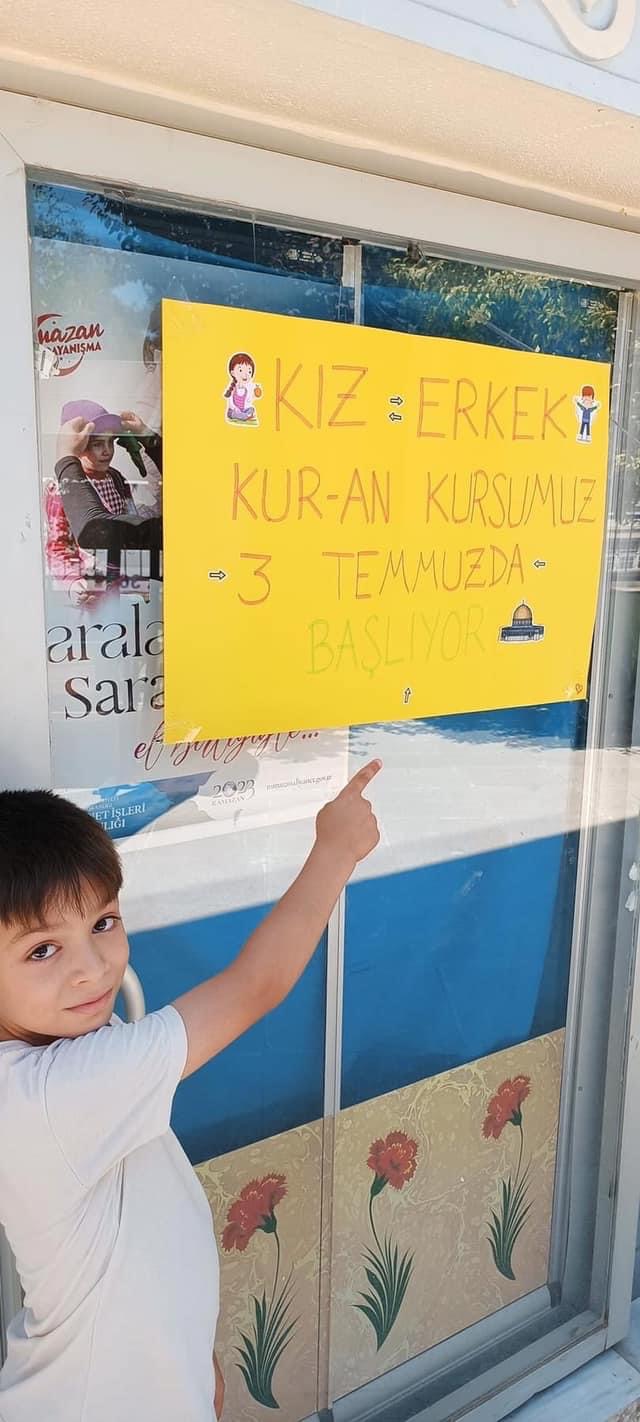 KIZ ERKEK
KUR-AN KURSUMUZ
3 TEMMUZDA
BAŞLIYOR
mazan
AYANIŞMA
arala
sara
2023
RAMAZAN
ET İŞLERİ
LIĞI